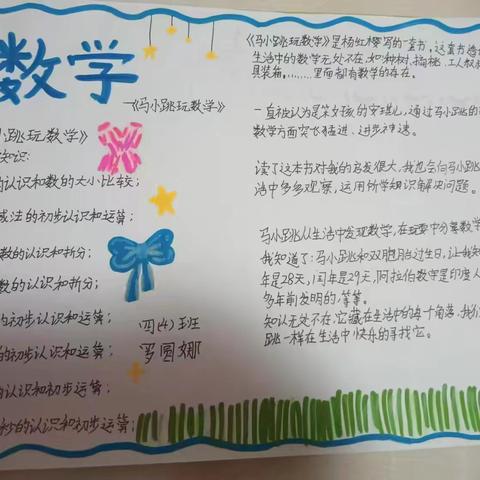 数学
—《马小跳玩数学》
小跳玩数学》
知识:
的认识和数的大小比较;
减法的初步认识和运算;
数的认识和折分;
数的认识和折分;
的初步认识和运算;
的初步认识和运算;
的认识和初步运算;
秒的认识和初步运算;
四(4)班
罗圆娜
《马小跳玩数学》是杨红樱写的一套书,这套书
生活中的数学无处不在,如:种树、摘桃、工人叔
具装箱,……里面都有数学的存在。
一直被认为是笨女孩的安琪儿,通过马小跳的
数学方面突飞猛进、进步神速。
读了这本书对我的启发很大,我也会向马小跳
活中多多观察,运用所学知识解决问题。
马小跳从生活中发现数学,在玩耍中分享数学
我知道了:马小跳和双胞胎过生日,让我知
年是28天,闰年是29天,阿拉伯数字是印度人
多年前发明的,等等。
知认无处不在,它藏在生活中的每个角落,我们
跳一样在生活中快乐的寻找它。